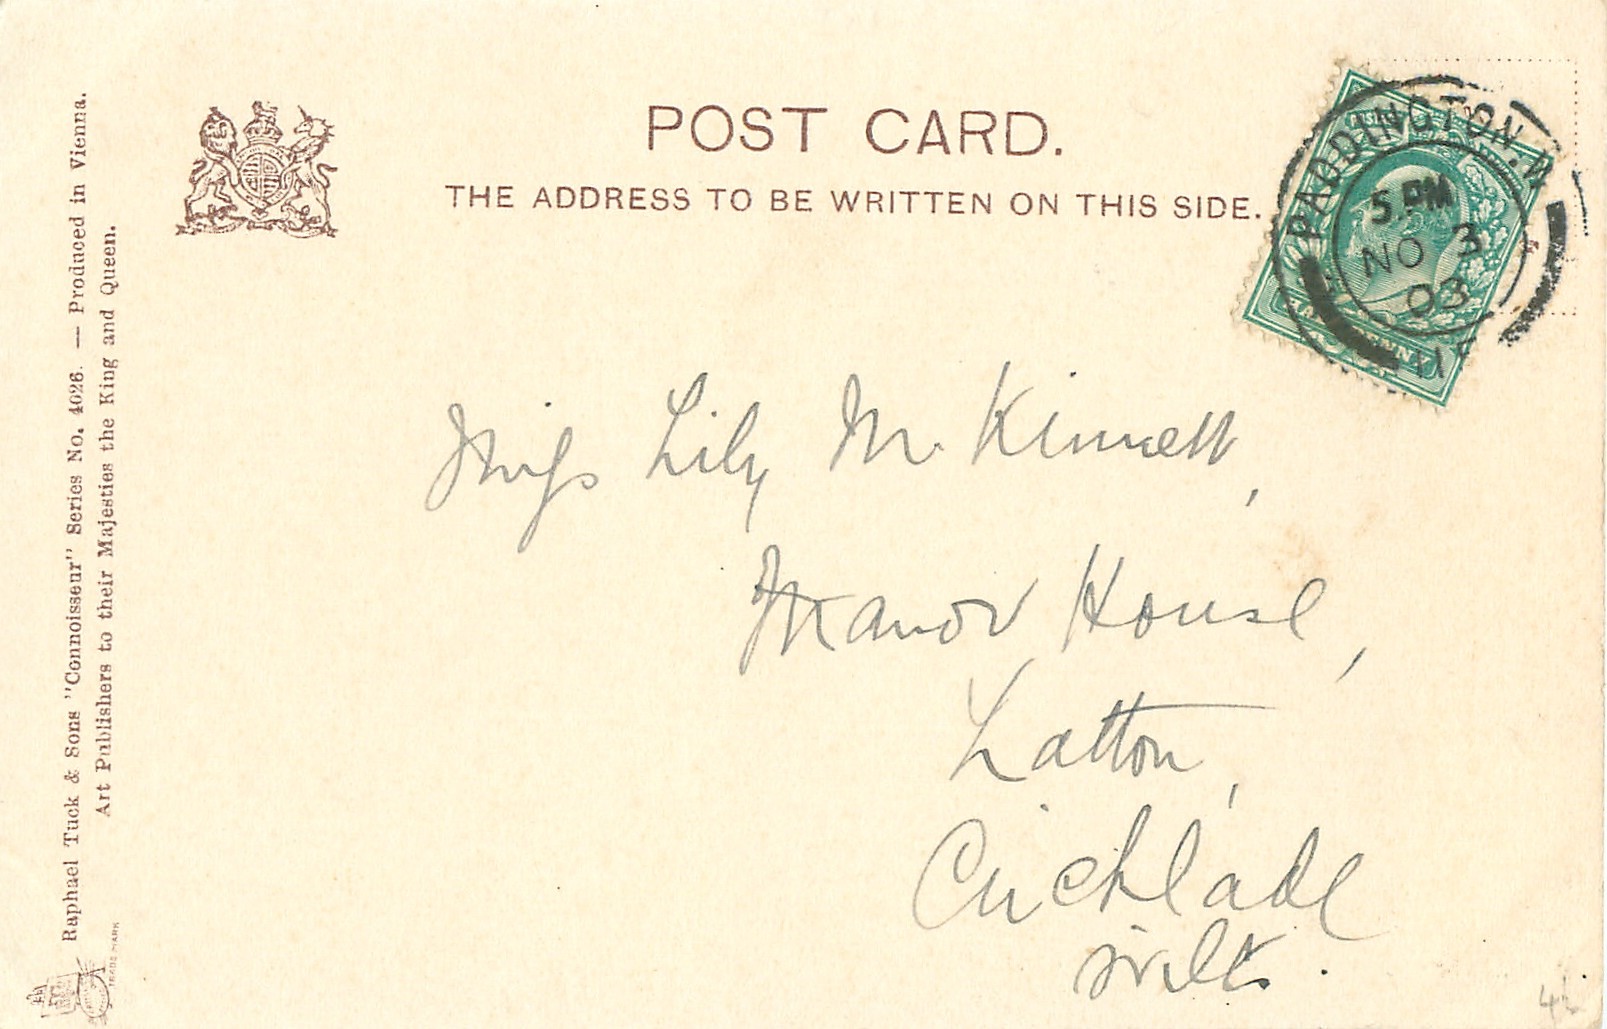 POST CARD.
THE ADDRESS TO BE WRITTEN ON THIS SIDE.
PADDINGTON. W
5. PM
NO 3
03
Miss Lily McKinnell,
Manor House,
Latton,
Cricklade
Wilts.
Raphael Tuck & Sons "Connoisseur" Series No. 4026. — Produced in Vienna.
Art Publishers to their Majesties the King and Queen.
TRADE MARK